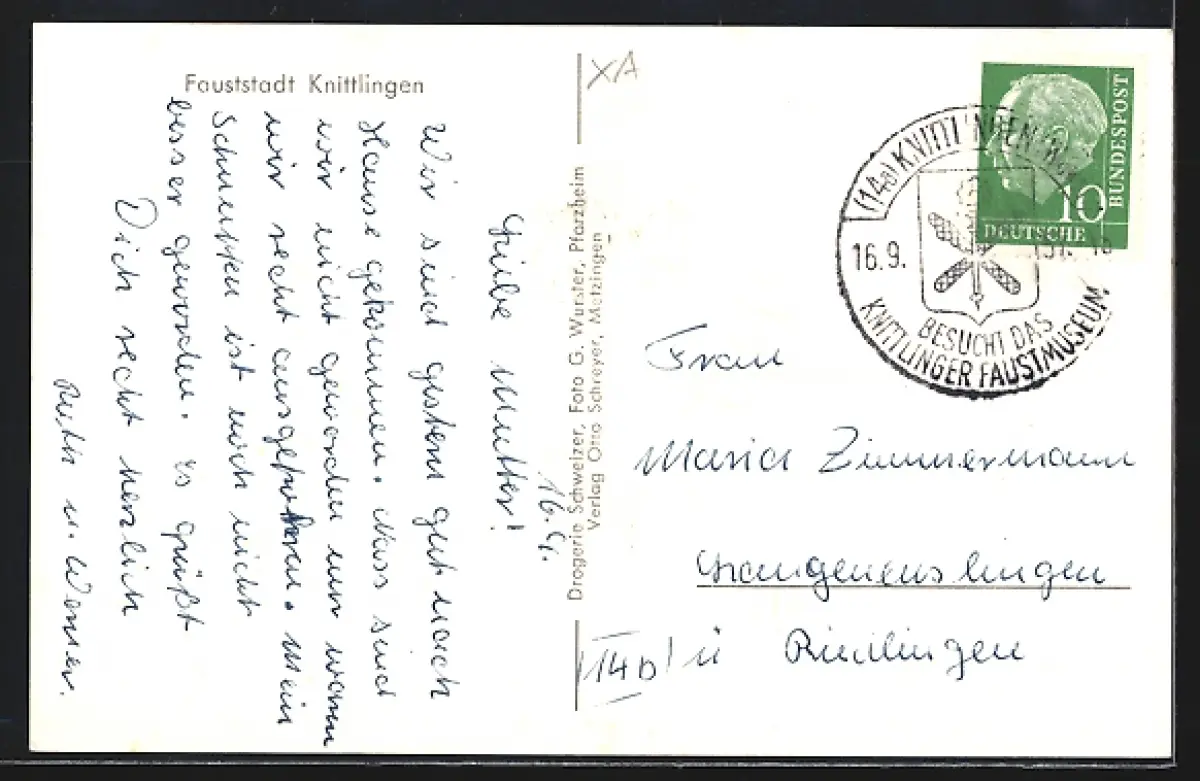 Fauststadt Knittlingen
16.9.
Liebe Mutter!
Wir sind gestern gut nach
Hause gekommen. Nass sind
wir nicht geworden nur waren
wir recht ausgefroren. Mein
Schnupfen ist noch nicht
besser geworden. Es grüßt
Dich recht herzlich
Ruth u. Werner.
Drogerie Schweizer, Foto G. Wurster, Pforzheim
Verlag Otto Schreyer, Metzingen
XA
DEUTSCHE
BUNDESPOST
10
(14a) KNITTLINGEN
16.9.
BESUCHT DAS
KNITTLINGER FAUSTMUSEUM
Frau
Maria Zimmermann
Grangenenslingen
14b ü Riedlingen